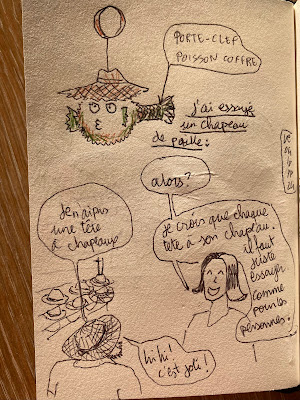 PORTE-CLEF
POISSON COFFRE
J'ai essayé
un chapeau
de paille:
alors?
Je n'ai pas
une tête
à chapeaux
Je crois que chaque
tête a son chapeau.
il faut
juste
essayer
comme
pour les
personnes.
hihi!
c'est joli!